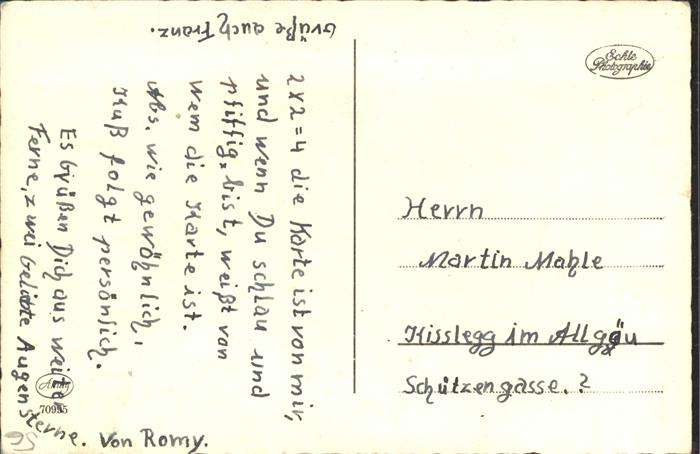 2x2=4 die Karte ist von mir,
und wenn Du schlau und
pfiffig bist, weißt von
wem die Karte ist.
Abs. wie gewöhnlich,
Kuß folgt persönlich.
Es Grüßen Dich aus weiter
Ferne, zwei geliebte Augensterne. Von Romy.
Grüße auch Franz.
Echte
Photographie
Herrn
Martin Mahle
Kisslegg im Allgäu
Schützengasse. 2
70955